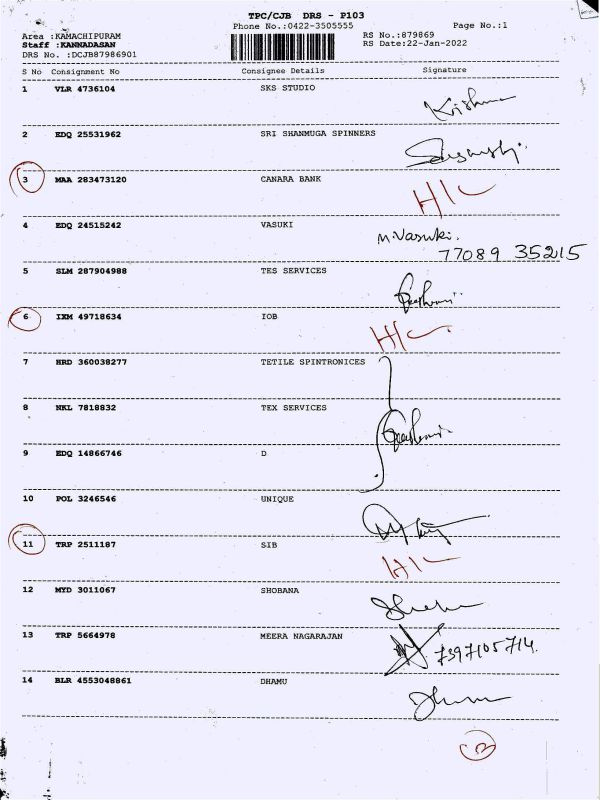 TPC/CJB DRS - P103
Phone No.:0422-3505555 Page No.:1
Area :KAMACHIPURAM RS No.:879869
Staff :KANNADASAN RS Date:22-Jan-2022
DRS No. :DCJB87986901
S No Consignment No Consignee Details Signature
1 VLR 4736104 SKS STUDIO Krishna
2 EDQ 25531962 SRI SHANMUGA SPINNERS
3 MAA 283473120 CANARA BANK H/L
4 EDQ 24515242 VASUKI M.Vasuki.
77089 35215
5 SLM 287904988 TES SERVICES
6 IXM 49718634 IOB H/L
7 HRD 360038277 TETILE SPINTRONICES
8 NKL 7818832 TEX SERVICES
9 EDQ 14866746 D
10 POL 3246546 UNIQUE
11 TRP 2511187 SIB H/L
12 MYD 3011067 SHOBANA
13 TRP 5664978 MEERA NAGARAJAN 7397105714.
14 BLR 4553048861 DHAMU